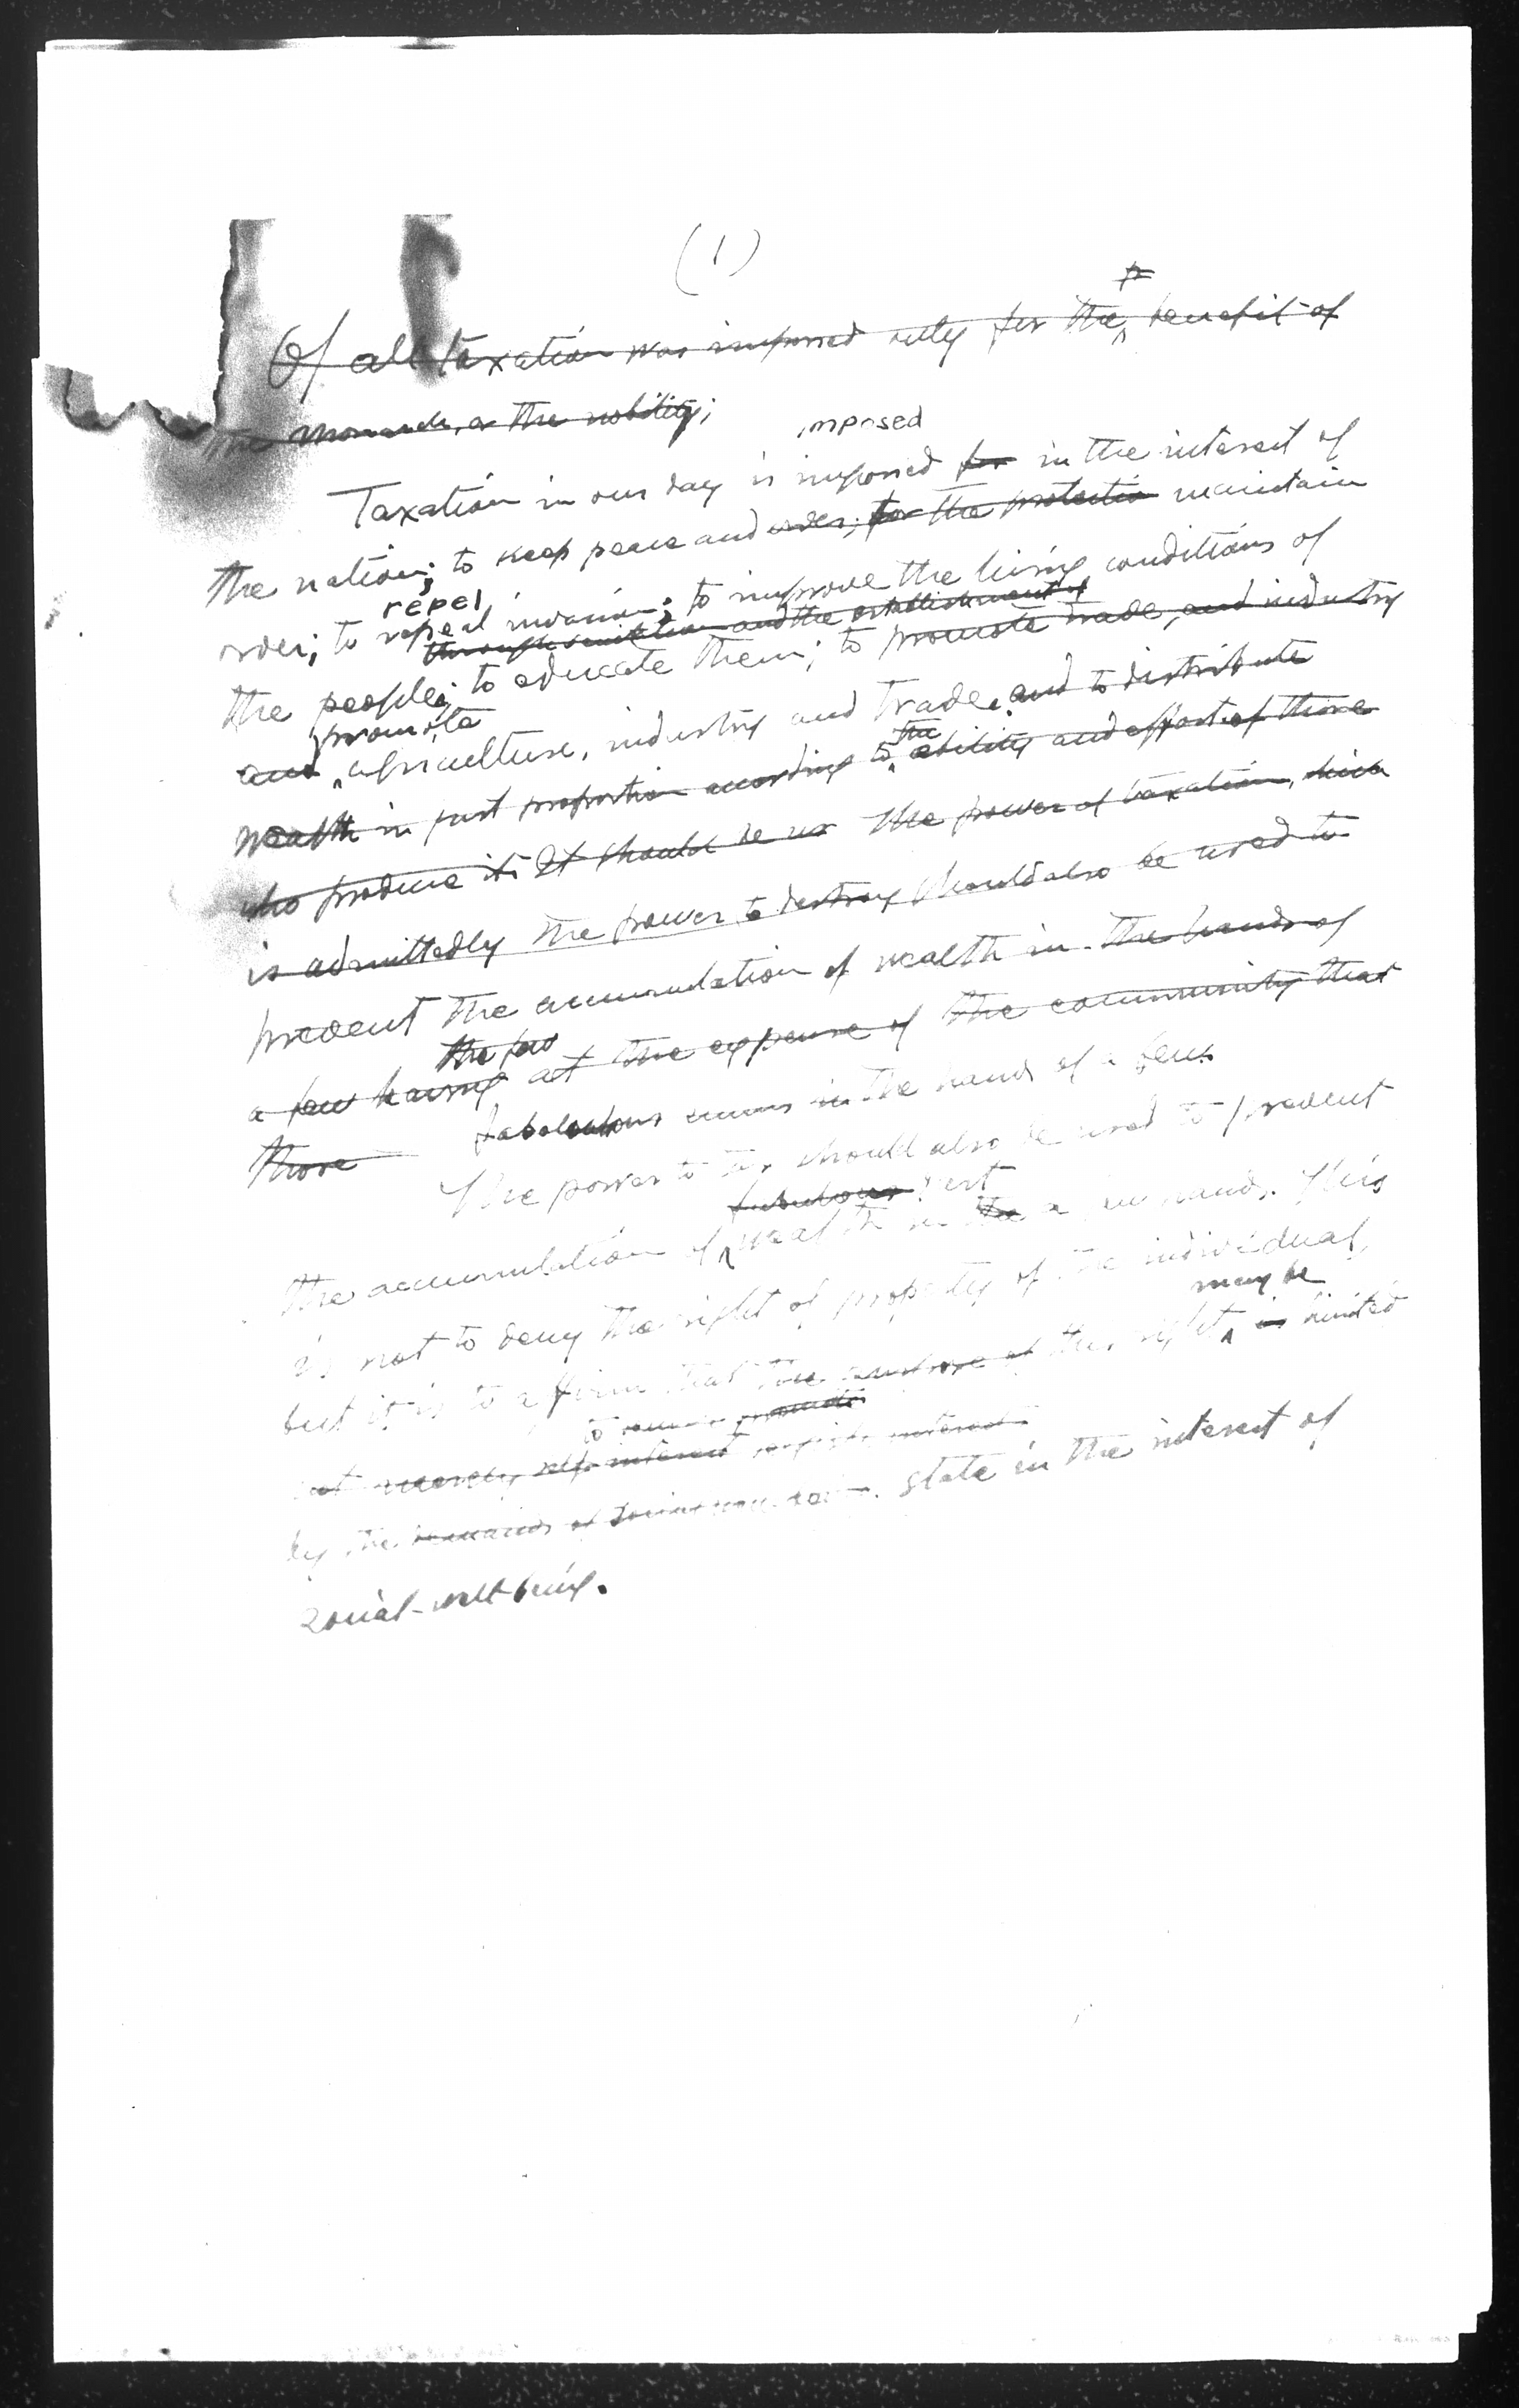 (1)
Of all taxation was imposed only for the benefit of
the monarch, or the nobility;
imposed
Taxation in our day is imposed for in the interest of
the nation; to keep peace and order; for the protection maintain
repel
order; to repeal invasion; to improve the living conditions of
through sanitation and the establishment of
the people; to educate them; to promote trade, and industry
promote
and agriculture, industry and trade. and to distribute
the
wealth in just proportion according to ability and effort of those
who produce it. It should be us The power of taxation, which
is admittedly the power to destroy should also be used to
prevent the accumulation of wealth in the hands of
the few
a few having at the expense of the community that
those fabulous sums in the hands of a few.
The power to tax should also be used to prevent
fabulous vast
the accumulation of wealth in the a few hands. This
is not to deny the right of property of the individual,
may be
but it is to affirm that the this right is limited
to promote
not merely self interest interest
by the demands of state in the interest of
social-well-being.